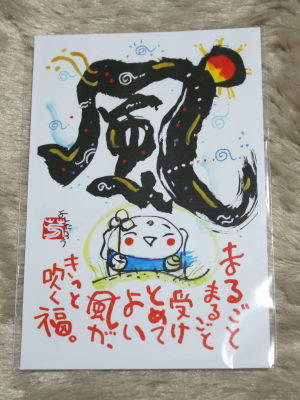 風
まるごと
まるごと
受け
とめて
よい
風が、
きっと
吹く福。